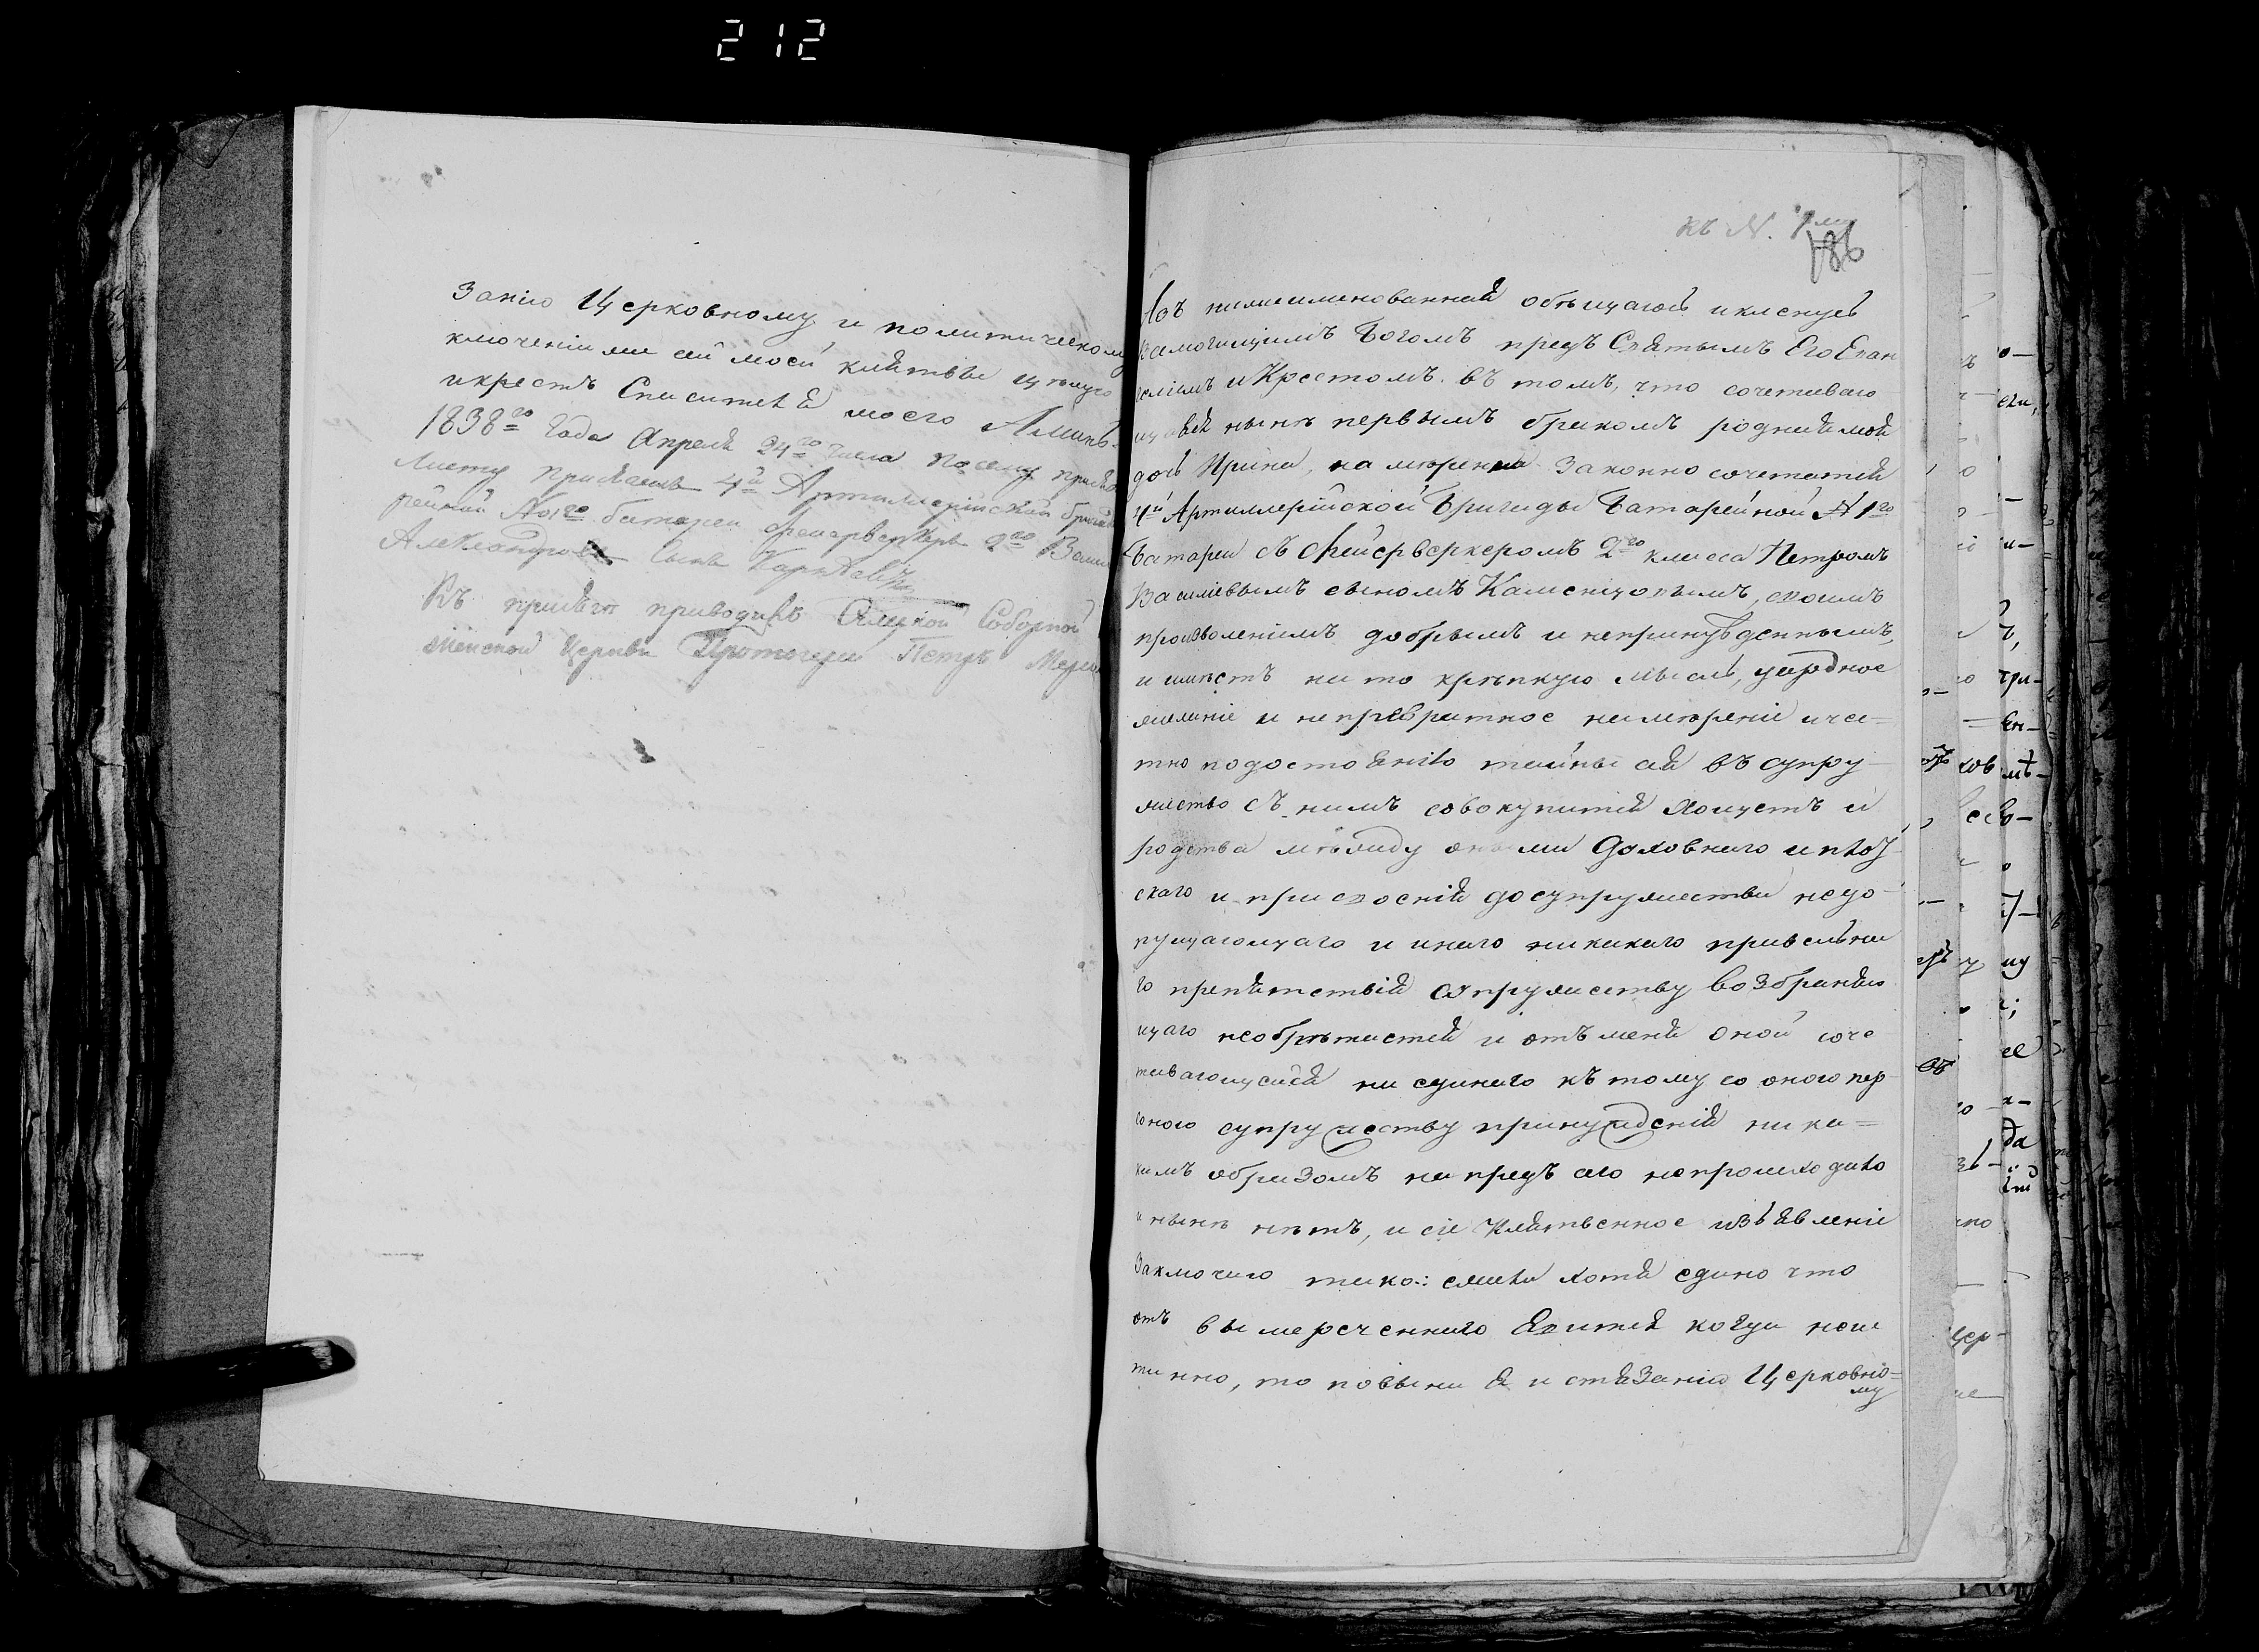 212
занію Церковному и политическому
ключеніи же сей моей клятвы цѣлую
и крестъ Спасителя моего Аминь.
1838го Года Апреля 24го числа По сему
Листу 4й Артиллерійской
No 1го батареи фейерверкеръ 2го
Александровъ Сынъ
Къ присягѣ приводилъ Соборной
Церкви Протоіерей Петръ
къ N.
186
Азъ нижеименованный обѣщаюсь и кленусь
Всемогущимъ Богомъ предъ Святымъ Его Еван
геліемъ и Крестомъ въ томъ, что сочетаваю
щаяся нынѣ первымъ бракомъ родная моя
дочь Ирина, намѣрена законно сочетатся
4й Артиллерійской Бригады Батарейной N 1го
батареи съ Фейерверкеромъ 2го класса Петромъ
Василіевымъ сыномъ Каменщовымъ, своимъ
произволеніемъ добрымъ и непринужденнымъ,
и имѣетъ на то крѣпкую мысль, усердное
желаніе и непревратное намѣреніе и чес=
тно по достоянію тайны сея въ супру
жество съ нимъ совокупится хощетъ и
родства между оными духовнаго и плоть
скаго и присвоенія до супружества недо-
пущающаго и инаго никакаго правильна
го препятствія супружеству возбраняю
щаго необрѣтается и отъ меня оной соче
тавающейся ни единаго къ тому со оного пер
соною супружеству принужденія ника=
кимъ образомъ на предъ сего непроисходило
и нынѣ нѣтъ, и сіе клятвенное изъявленіе
Заключаю тако: ежели хотя едино что
отъ вышереченнаго явится когда неис
тинно, то повинна я истязанію Церковно=
му